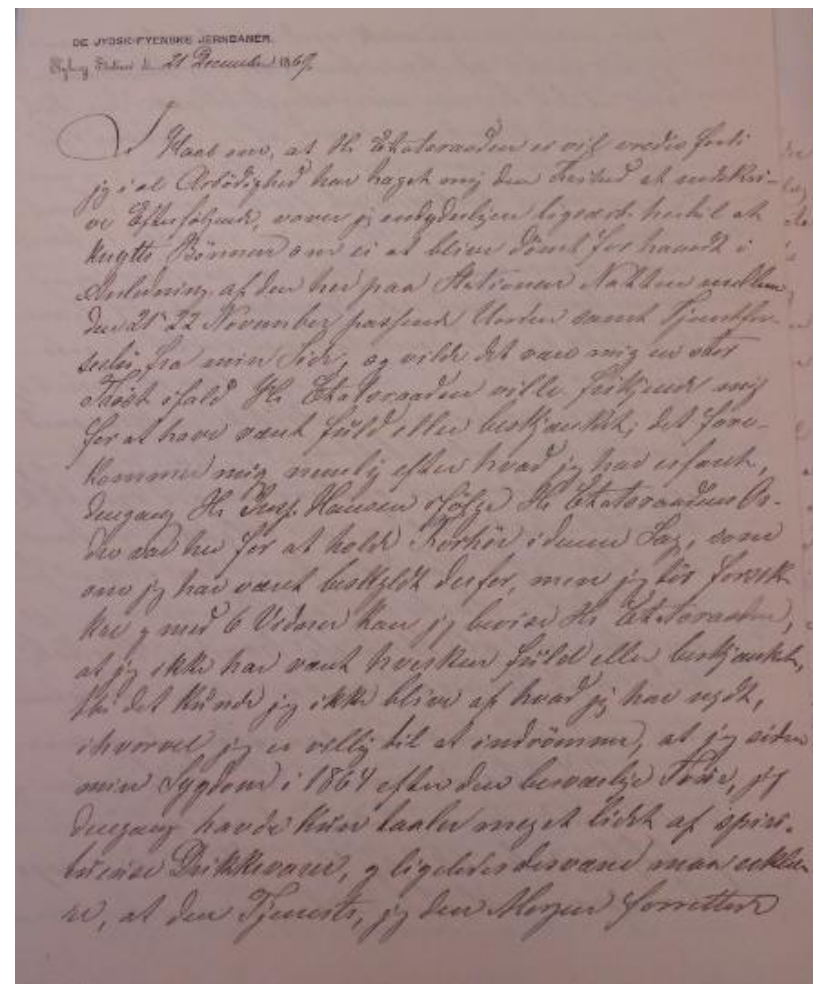 DE JYDSK-FYENSKE JERNBANER.
Station d. 21 December 1869.
I Haab om, at Hr. Etatsraaden ei vil vredes fordi
jeg i al Ærbødighed har taget mig den Frihed at nedskri-
ve Efterfølgende, vover jeg endydeligen ligesaa hertil at
knytte Bønnen om ei at blive dømt for haardt i
Anledning af den her paa Stationen Natten mellem
den 21-22 November passerede Uorden samt Tjenestfor-
seelse fra min Side, og vilde det være mig en stor
Trøst ifald Hr. Etatsraaden ville frikjende mig
for at have været fuld eller beskjænket; det fore-
kommer mig nemlig efter hvad jeg har erfaret,
dengang Hr. Insp. Hansen ifølge Hr. Etatsraadens Or-
dre var her for at holde Forhør i denne Sag, som
om jeg har været beskyldt derfor, men jeg tør forsik-
kre og med 6 Vidner kan jeg bevise Hr. Etatsraaden,
at jeg ikke har været hverken fuld eller beskjænket,
thi det kunde jeg ikke blive af hvad jeg har nydt,
ihvorvel jeg er villig til at indrømme, at jeg siden
min Sygdom i 1864 efter den besværlige Tour, jeg
dengang havde kun taaler meget lidet af spiri-
tueuse Drikkevarer, og ligeledes desværre maa erklæ-
re, at den Tjeneste, jeg den Morgen forrettede